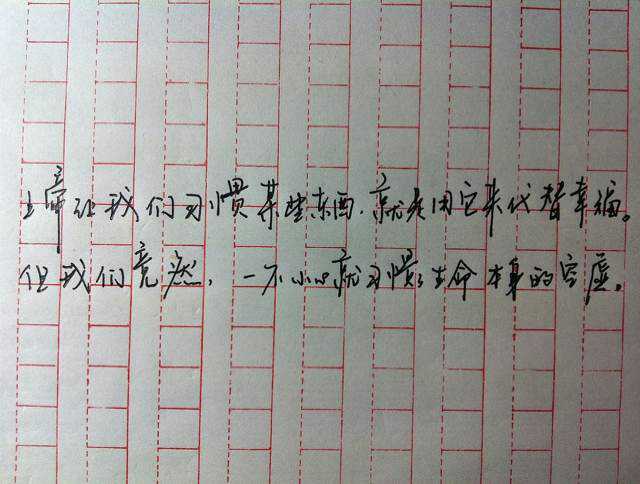 上帝让我们习惯某些东西,就是用它来代替幸福。
但我们竟然,一不小心就习惯了生命本身的空虚。